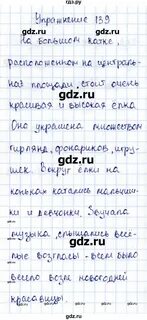 гдз.ру
Упражнение 139
На большом катке,
расположенном на централь-
ной площади, стоит очень
красивая и высокая ёлка
Она украшена множеством
гирлянд, фонариков, игру-
шек. Вокруг ёлки на
коньках катались мальчиш-
ки и девчонки. Звучала
музыка, слышались весё-
лые возгласы - всем было
весело возле новогодней
красавицы.
gdz.ru
gdz.ru
gdz.ru
gdz.ru
gdz.ru
gdz.ru
gdz.ru
gdz.ru